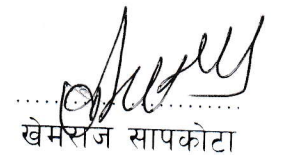 खेमराज सापकोटा